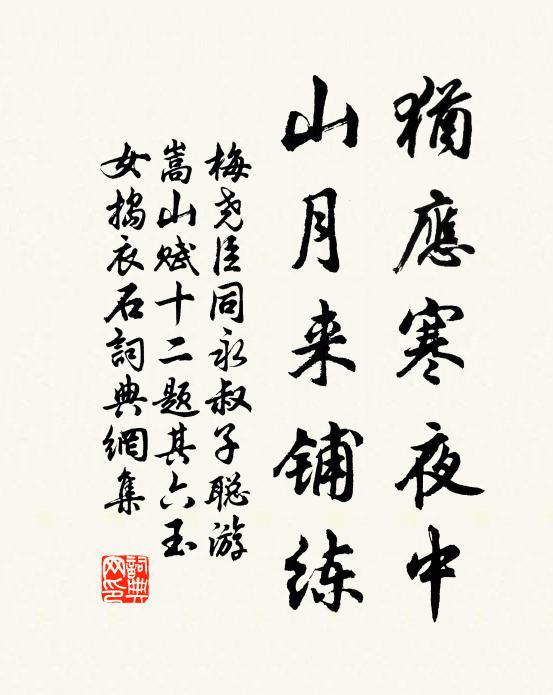 猶應寒夜中
山月来铺练
梅尧臣同永叔子聪游
嵩山赋十二题其六玉
女捣衣石詞典網集
詞典
网印